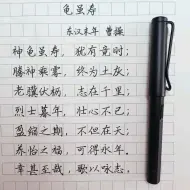 龟虽寿
东汉末年 曹操
神龟虽寿,犹有竟时;
腾神乘雾,终为土灰;
老骥伏枥,志在千里;
烈士暮年,壮心不已;
盈缩之期,不但在天;
养怡之福,可得永年。
幸甚至哉,歌以咏志。